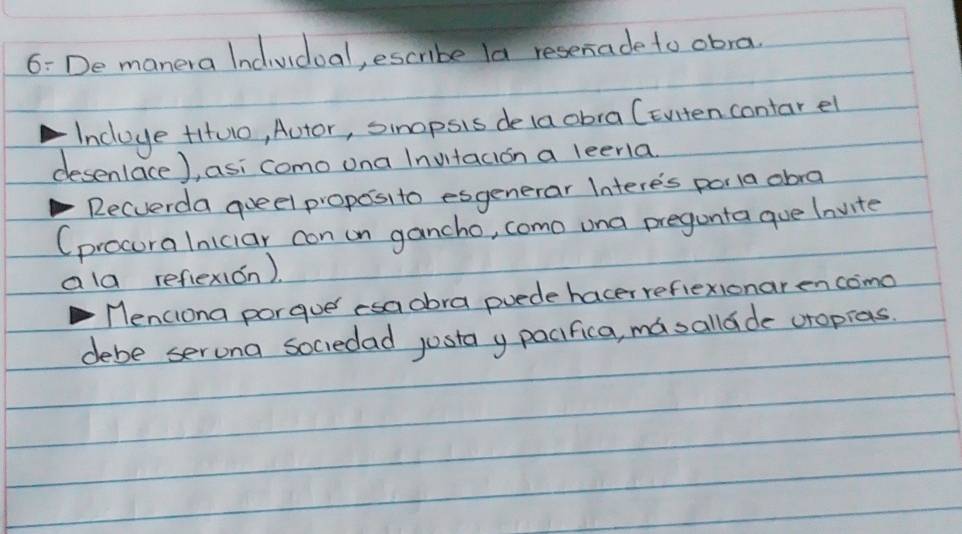 6.- De manera Individual, escribe la reseñade tu obra.
► Incluye titulo, Autor, sinopsis de la obra (Eviten contar el
desenlace), así como una Invitación a leerla.
► Recuerda queel propósito esgenerar Interés porla obra
(procura Iniciar con un gancho, como una pregunta que Invite
ala reflexión).
► Menciona porqué esaobra puede hacerreflexionar en cómo
debe seruna sociedad justa y pacífica, más alláde utopias.